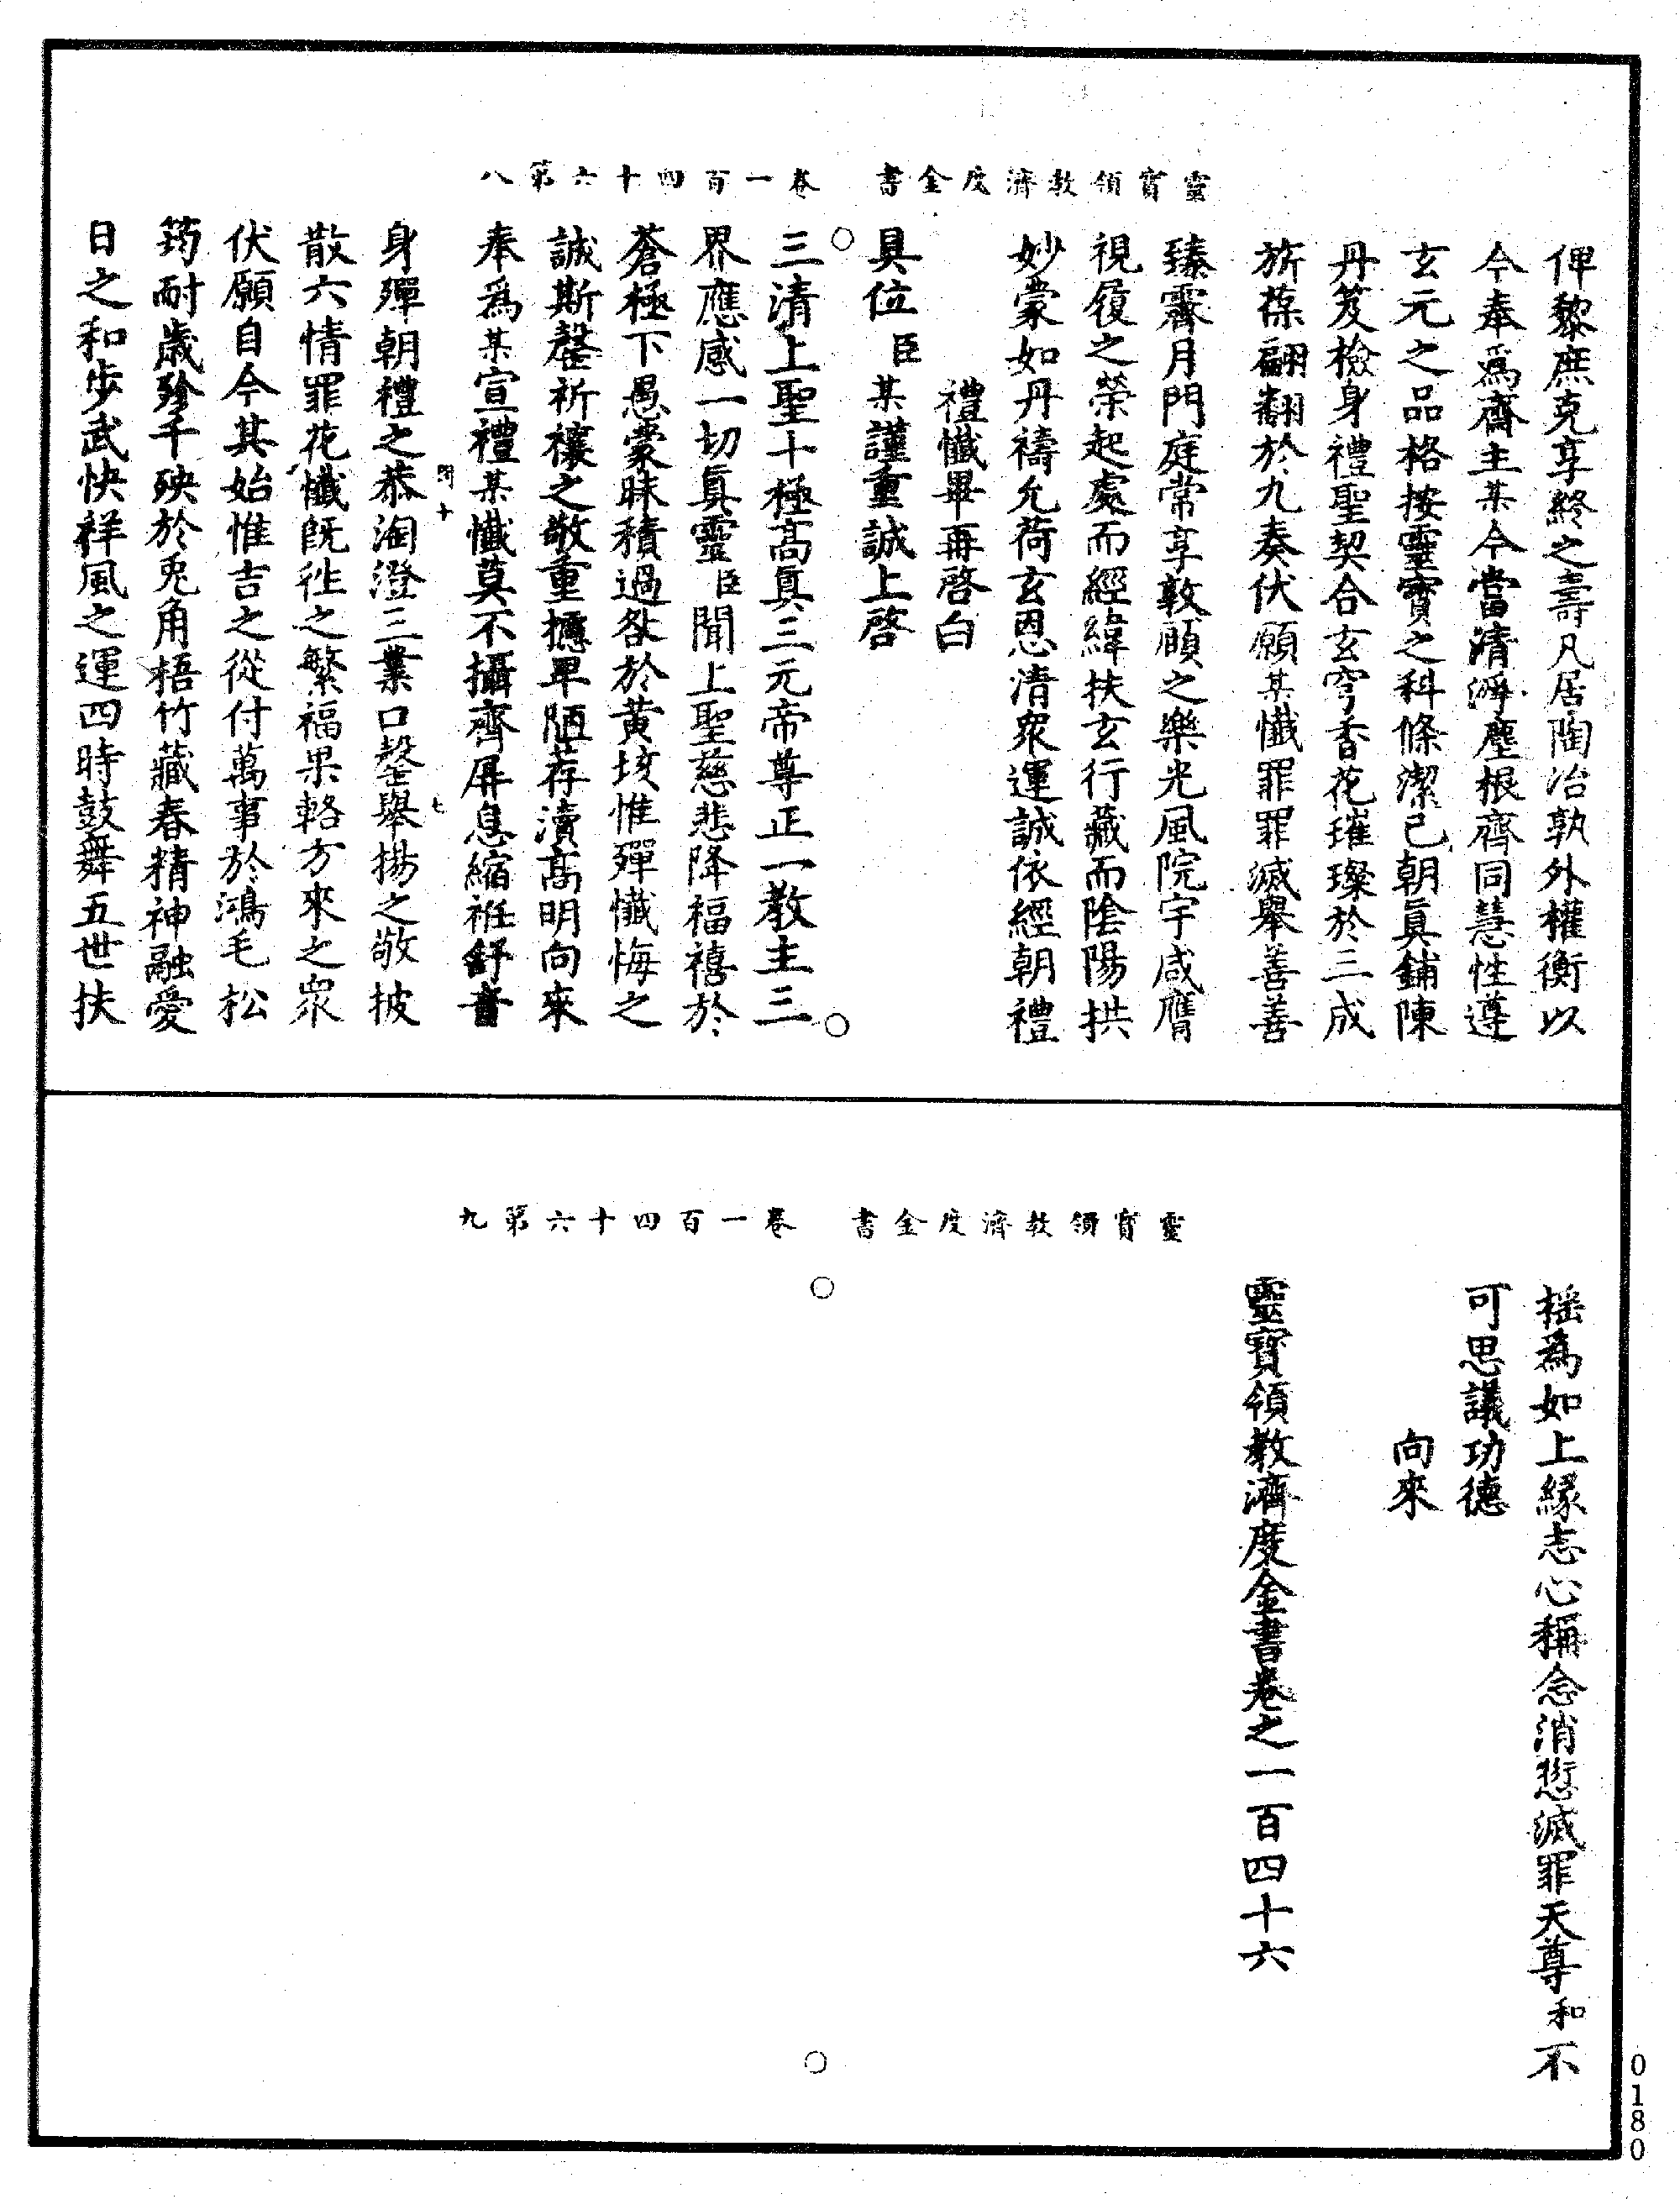 靈寶領教濟度金書　卷一百四十六第八
俾黎庶克享終之壽凡居陶冶孰外權衡以
今奉爲齋主某今當清淨塵根齊同慧性遵
玄元之品格按靈寶之科條潔己朝眞鋪陳
丹笈檢身禮聖契合玄穹香花璀璨於三成
旂葆翩翻於九奏伏願某懺罪罪滅舉善善
臻霽月門庭常享敦頤之樂光風院宇咸膺
視履之榮起處而經緯扶玄行藏而陰陽拱
妙蒙如丹禱允荷玄恩清衆運誠依經朝禮
禮懺畢再啓白
具位臣某謹重誠上啓
三清上聖十極高眞三元帝尊正一教主三
界應感一切眞靈臣聞上聖慈悲降福禧於
蒼極下愚蒙昧積過咎於黃垓惟殫懺悔之
誠斯罄祈禳之敬重攄卑陋荐瀆高明向來
奉爲某宣禮某懺莫不攝齊屏息縮袵舒
身殫朝禮之恭淘澄三業口罄舉揚之敬披
散六情罪花懺旣徃之繁福果輅方來之衆
伏願自今其始惟吉之從付萬事於鴻毛松
筠耐歲殄千殃於兎角梧竹藏春精神融愛
日之和步武快祥風之運四時鼓舞五世扶
七
靈寶領教濟度金書　卷一百四十六第九
摇爲如上緣志心稱念消愆滅罪天尊和不
可思議功德
向來
靈寶領教濟度金書卷之一百四十六
0180